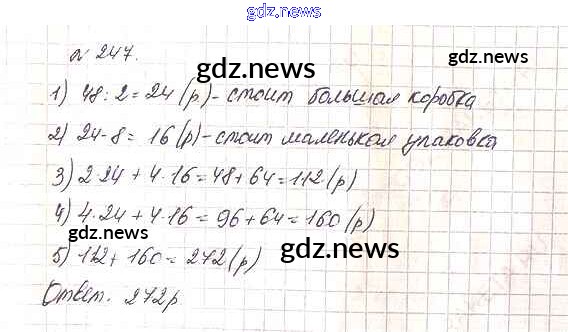 gdz.news
№ 247.
gdz.news
gdz.news
1) 48:2=24 (р)-стоит большая коробка
2) 24-8= 16(р)-стоит маленькая упаковка
3) 2·24 + 4·16=48+64=112(р)
gdz.news
4) 4·24+4·16 = 96+64=160(р)
gdz.news
gdz.news
5) 112+ 160= 272(р)
Ответ. 272р